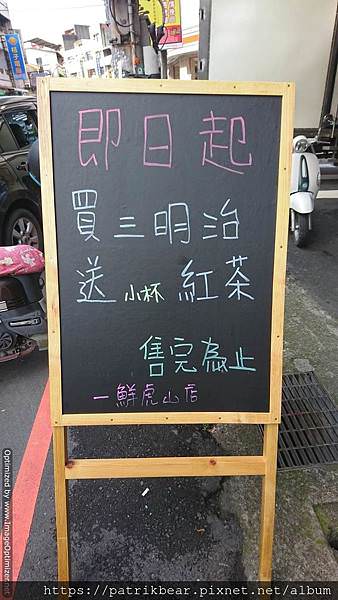 即日起
買三明治
送 小杯 紅茶
售完為止
一鮮虎山店
Optimized by www.ImageOptimizer.net
https://patrikbear.pixnet.net/album